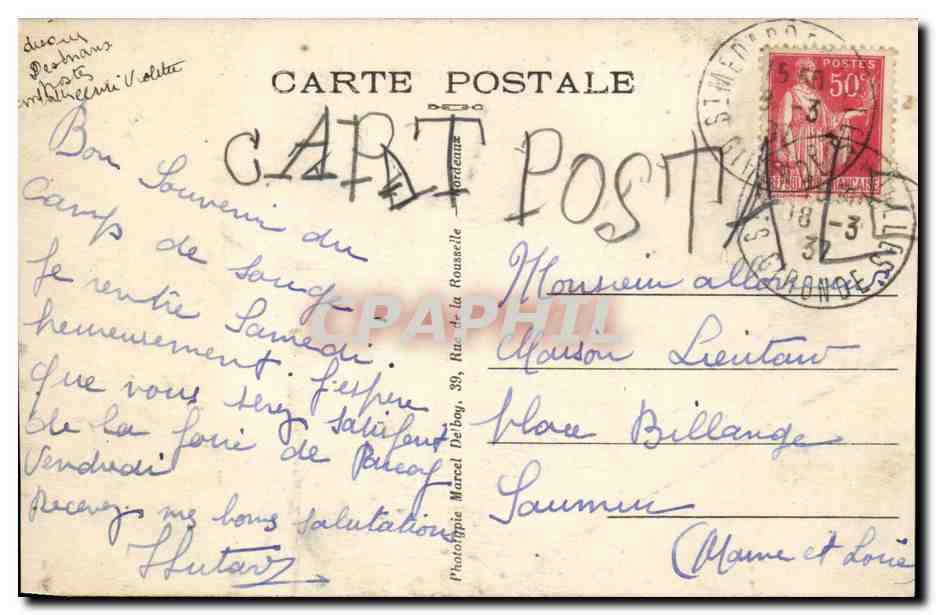 CARTE POSTALE
CART POSTAL
Bon Souvenir du
Camp de Souge
Je rentre Samedi
heureusement. J'espère
que vous serez satisfait
de la foire de
Vendredi
Recevez mes bonnes salutations
Phototypie Marcel Delboy, 39, Rue de la Rousselle — Bordeaux
Monsieur
Maison Lientaw
Place Billange
Saumur
(Maine et Loire
POSTES
50c
REPUBLIQUE FRANÇAISE
ST MEDARD
GIRONDE
18 -3
37
GIRONDE
CPAPHIL
Violette